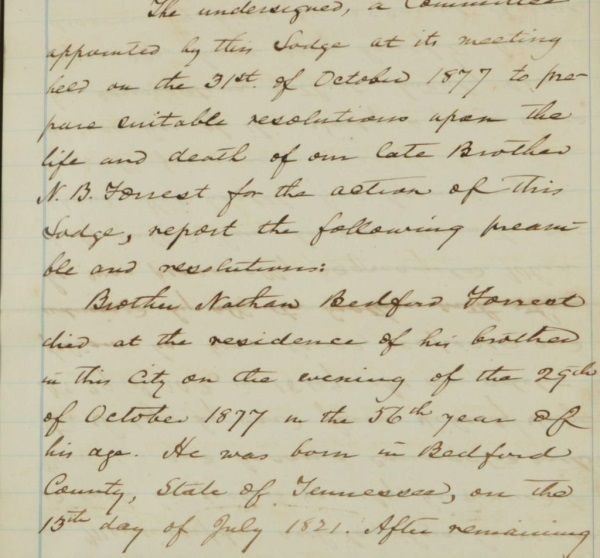 The undersigned, a Committee
appointed by this Lodge at its meeting
held on the 31st. of October 1877 to pre-
pare suitable resolutions upon the
life and death of our late Brother
N. B. Forrest for the action of this
Lodge, report the following pream-
ble and resolutions:
Brother Nathan Bedford Forrest
died at the residence of his brother
in this City on the evening of the 29th
of October 1877 in the 56th year of
his age. He was born in Bedford
County, State of Tennessee, on the
13th day of July 1821. After remaining